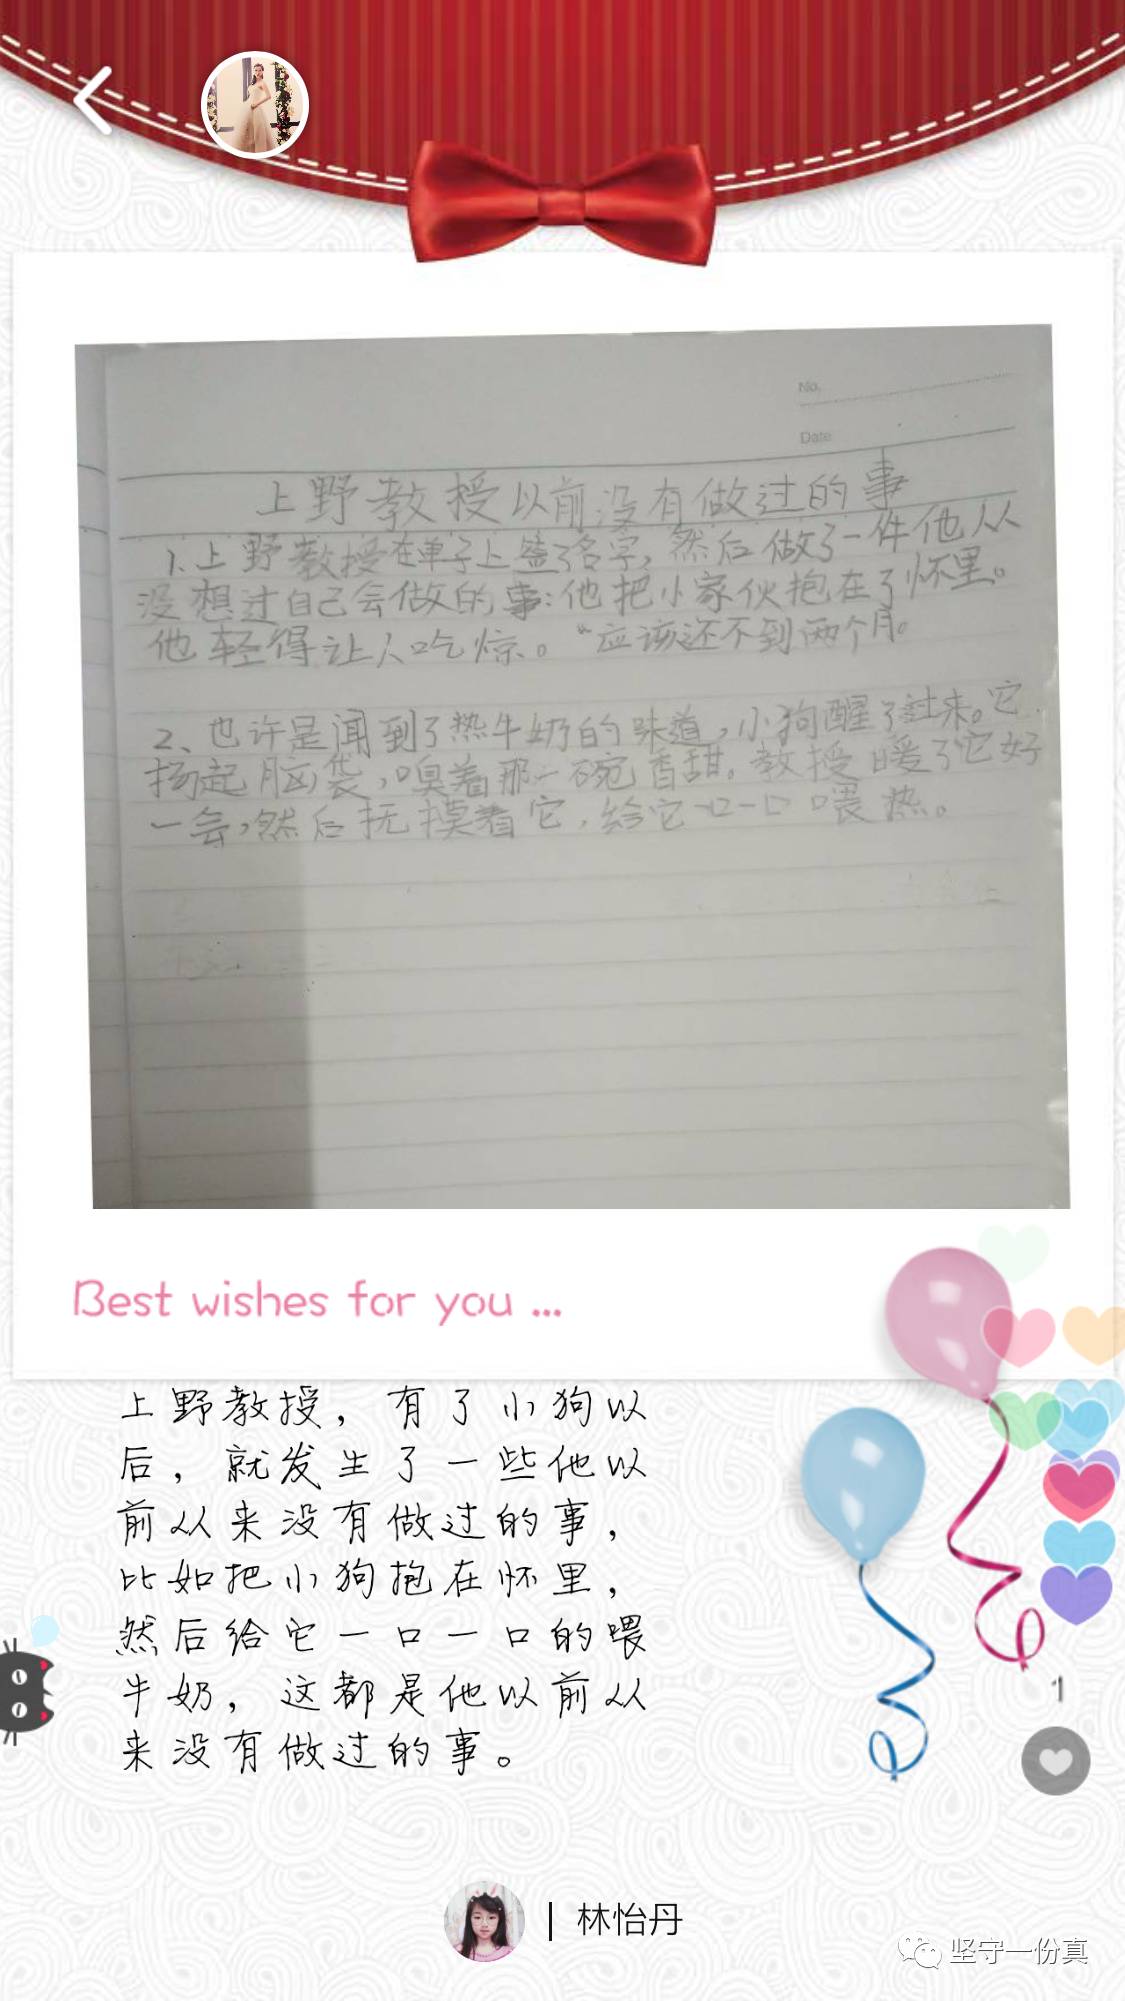 No.
Date
上野教授以前没有做过的事
1、上野教授在单子上盖了名字，然后做了一件他从
没想过自己会做的事：他把小家伙抱在了怀里。
他轻得让人吃惊。“应该还不到两个月。
2、也许是闻到了热牛奶的味道，小狗醒了过来。它
扬起脑袋，嗅着那一碗香甜。教授暖了它好
一会，然后抚摸着它，给它一口一口喂热。
Best wishes for you ...
上野教授，有了小狗以
后，就发生了一些他以
前从来没有做过的事，
比如把小狗抱在怀里，
然后给它一口一口的喂
牛奶，这都是他以前从
来没有做过的事。
1
林怡丹
坚守一份真